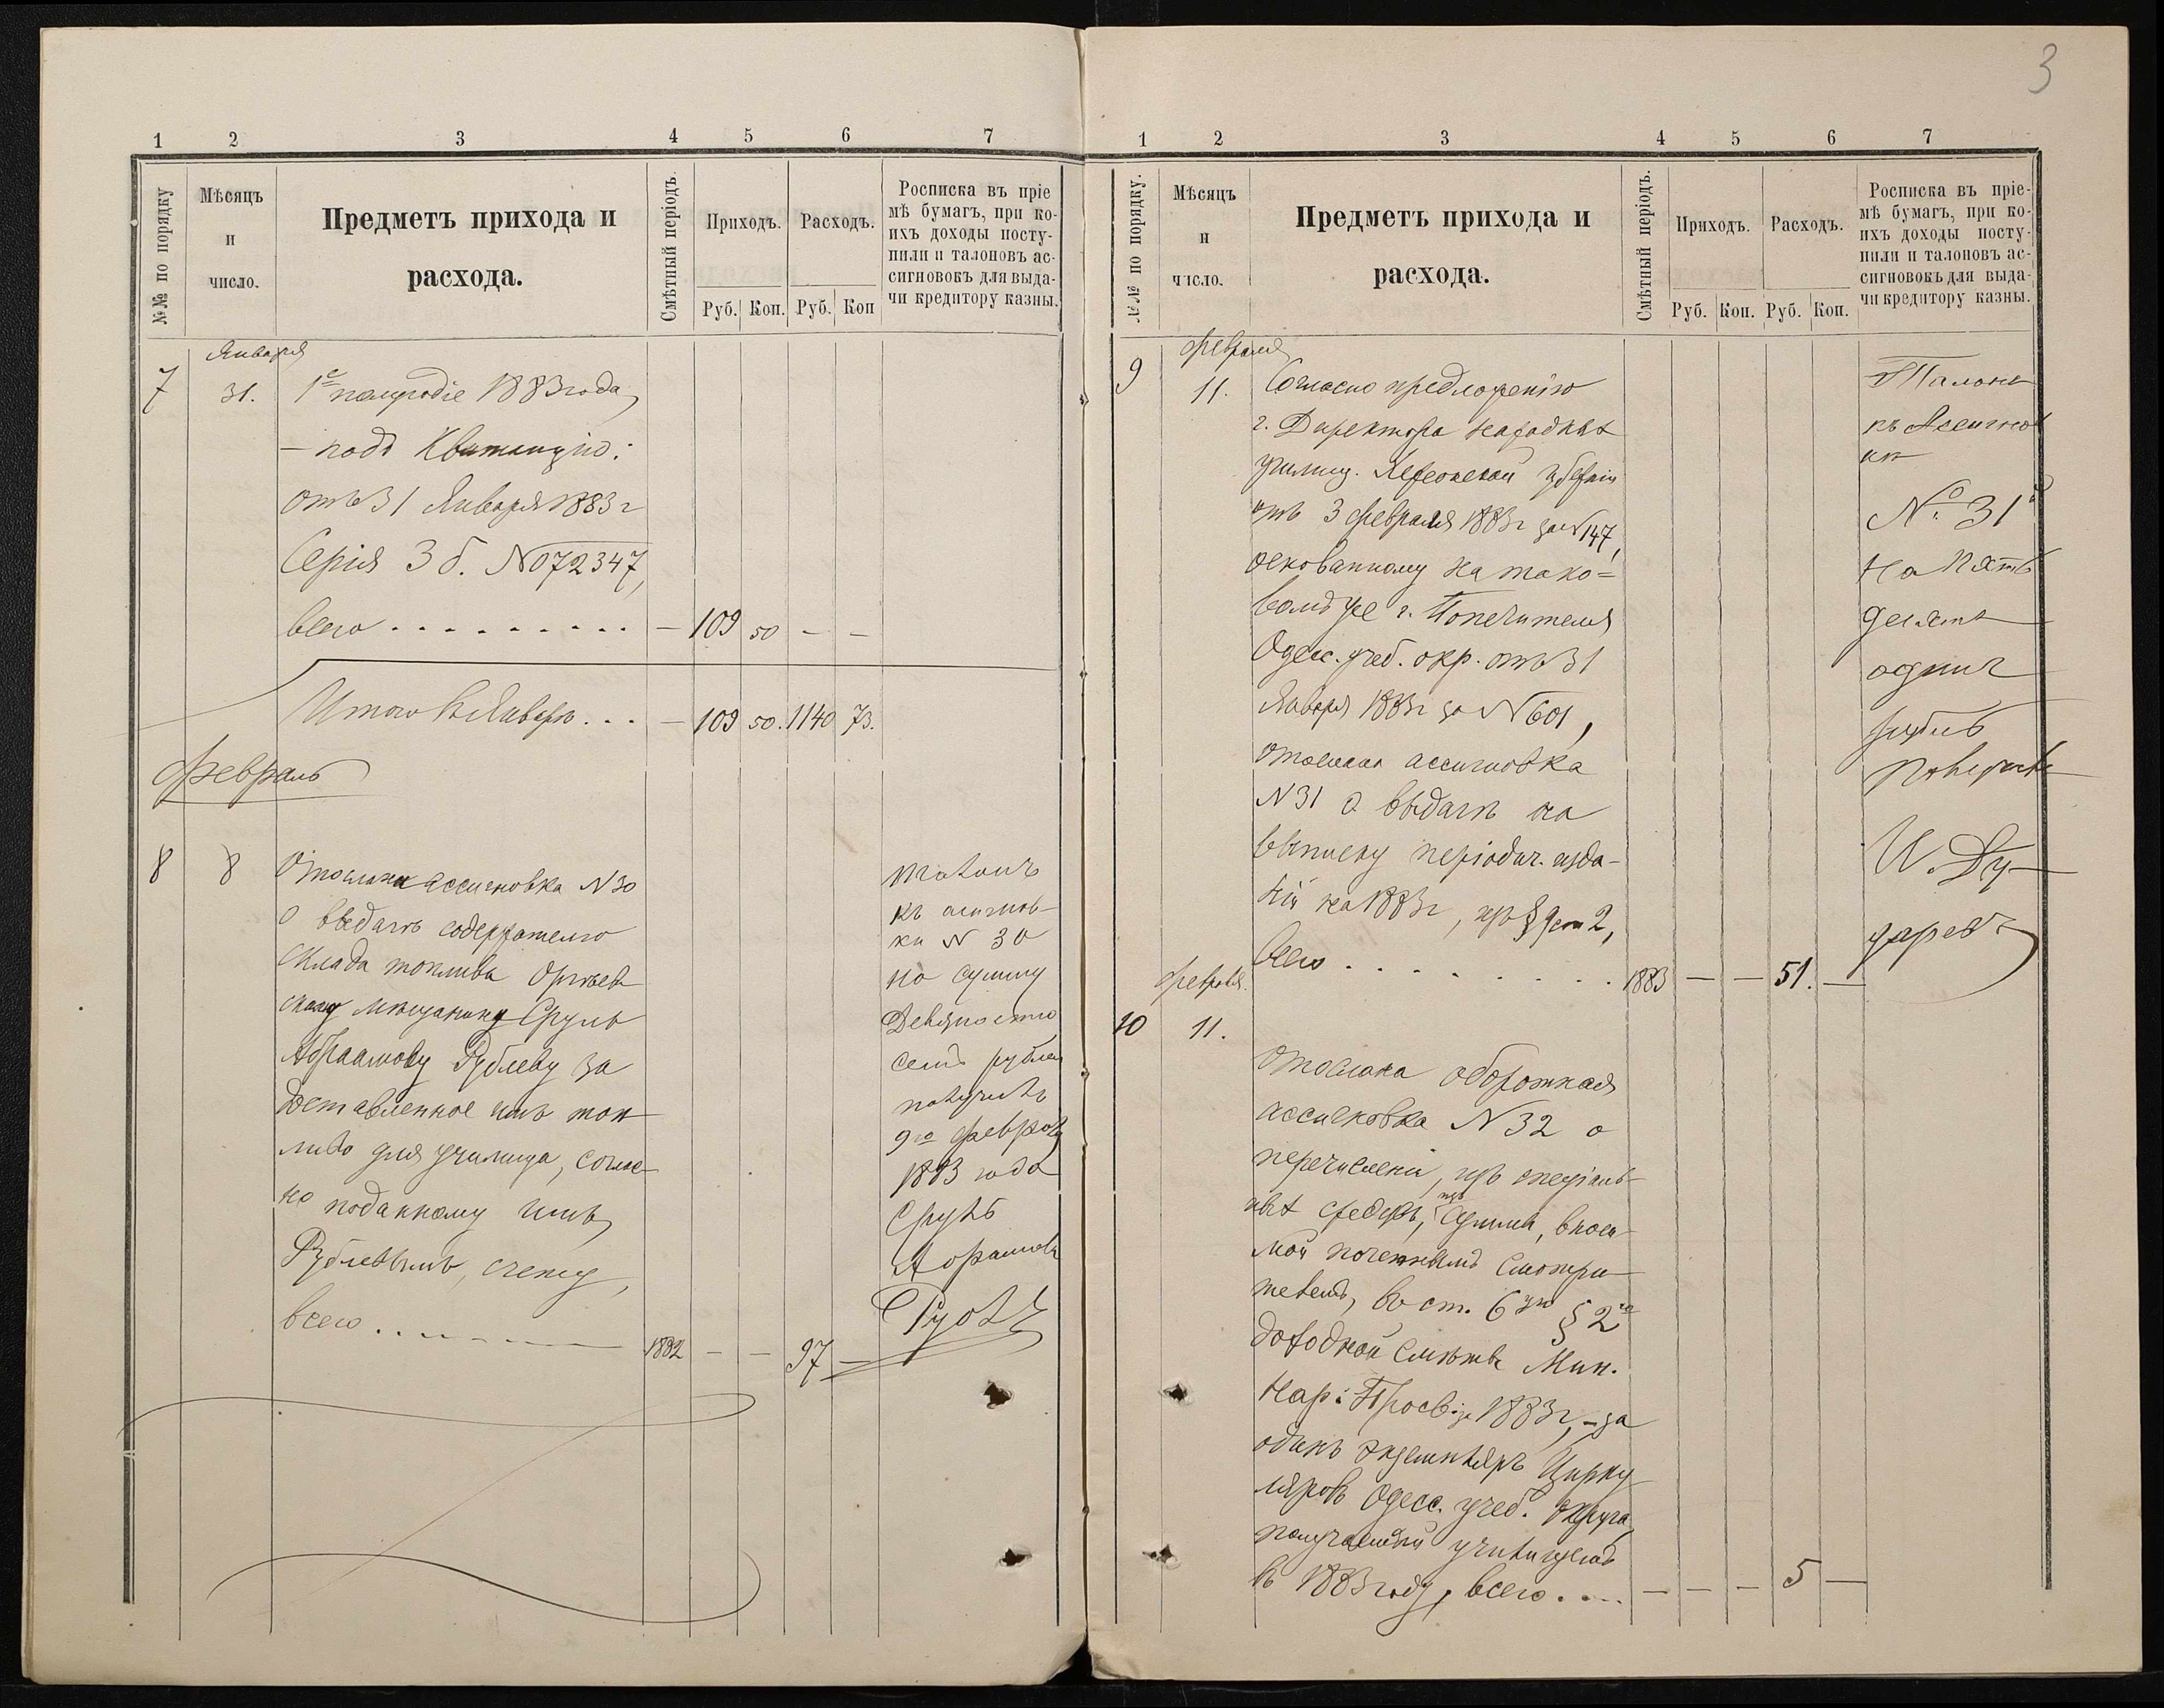 1 2 3 4 5 6 7
№№ по порядку
Мѣсяцъ
и
число.
Предметъ прихода и
расхода.
Смѣтный періодъ.
Приходъ. Расходъ.
Руб. Коп. Руб. Коп
Росписка въ пріе
мѣ бумагъ, при ко-
ихъ доходы посту-
пили и талоновъ ас-
сигновокъ для выда-
чи кредитору казны.
Января
7 31. 1е полугодіе 1883 года,
— подъ Квитанцію:
отъ 31 Января 1883 г
Серія 3 б. N 072347,
всего . . . . . . . . . — 109 50 — —
Итого въ Январѣ . . . — 109 50. 1140 73.
Февраль
8 8 Отослана ассигновка N 30
о выдачѣ содержателю
склада топлива Оргѣев
скому мѣщанину Сруль
Абраамову Рублеву за
доставленное имъ топ
ливо для училища, соглас
но поданному имъ,
Рублевымъ, счету,
всего . . . . 1882 — — 97 —
талонъ
къ асигнов-
ки N 30
на сумму
Девяносто
семь рублей
получилъ
9го февра
1883 года
Сруль
3
1 2 3 4 5 6 7
№№ по порядку.
Мѣсяцъ
и
число.
Предметъ прихода и
расхода.
Смѣтный періодъ.
Приходъ. Расходъ.
Руб. Коп. Руб. Коп.
Росписка въ пріе-
мѣ бумагъ, при ко-
ихъ доходы посту-
пили и талоновъ ас-
сигновокъ для выда-
чи кредитору казны.
Февраля
9 11. Согласно предложенію
г. Директора народныхъ
училищ. Херсонской губерніи
отъ 3 февраля 1883 г за N 147,
основанному на тако=
вомъ же г. Попечителя
Одесс. учеб. окр. отъ 31
Января 1883 г за N 601,
отослана ассигновка
N 31 о выдачѣ на
выписку періодич. изда-
ній на 1883 г, изъ § 9 ст 2,
всего . . . . . . . . 1883 — — 51. —
Талонъ
къ Ассигнов
кѣ
№ 31й
на пять
десятъ
одинъ
рубль
получилъ
И.
Февраля.
10 11.
Отослана оборотная
ассигновка N 32 о
перечисленіи, изъ спеціаль-
ныхъ средствъ, изъ суммы, вноси-
мой почетнымъ Смотри
телемъ, въ ст. 6ую § 2го
доходной смѣты Мин.
Нар. Просв. 1883 г, – за
одинъ экземпляръ Цирку
ляровъ Одесс. учеб. Округа,
получаемый училищемъ
въ 1883 году, всего . . . . — — — 5 —